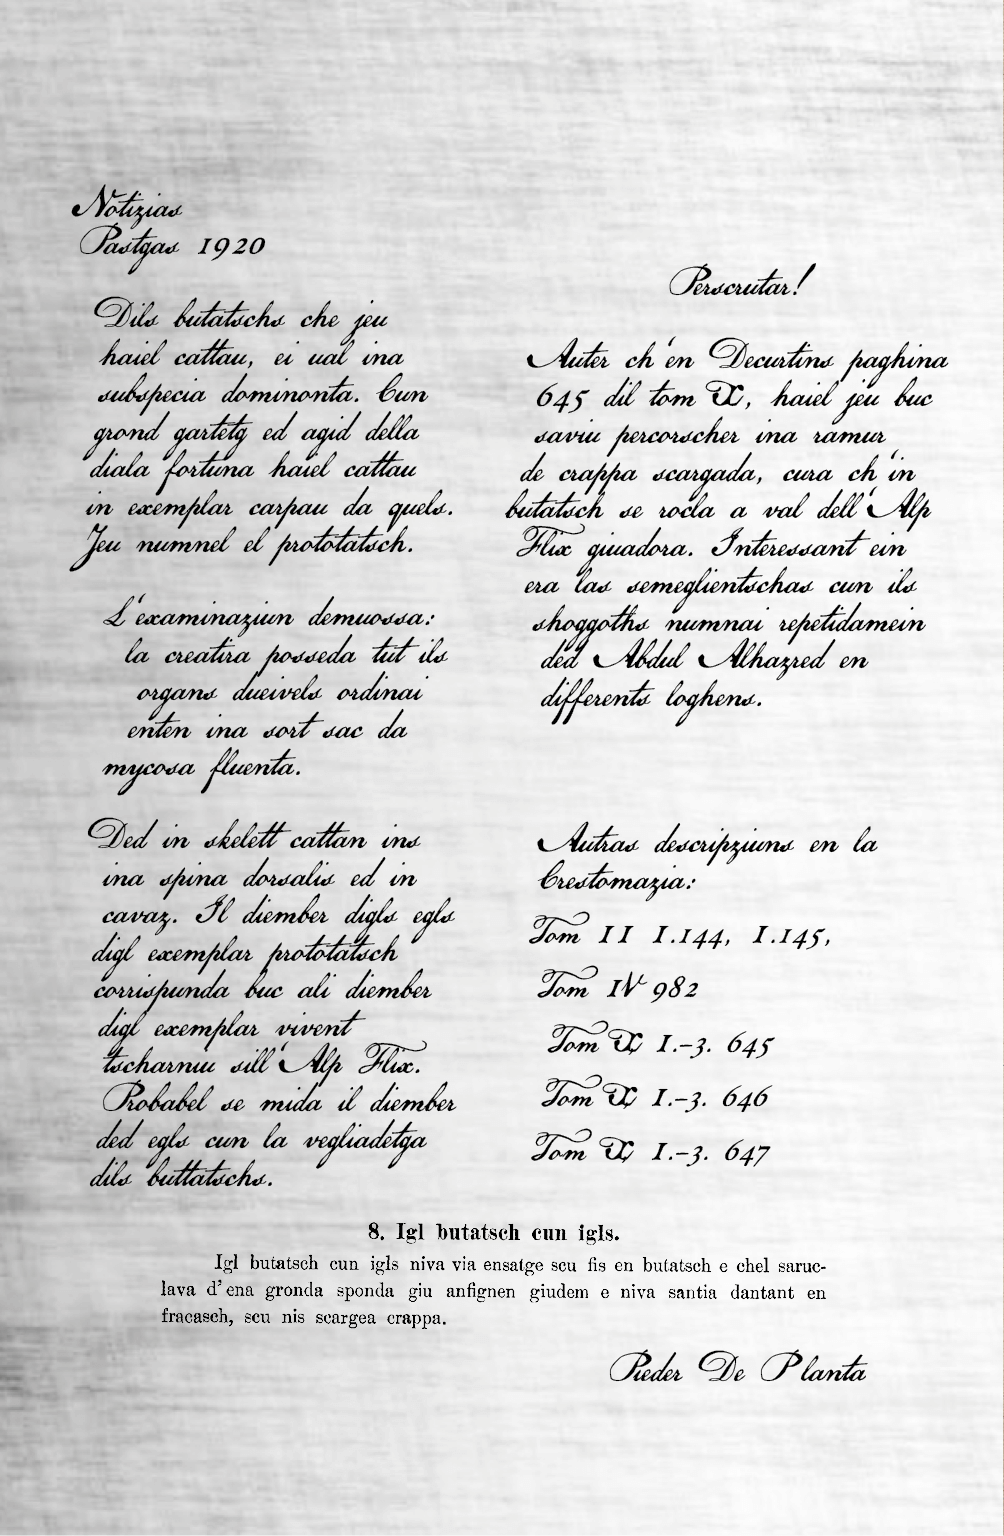 Notizias
Pastgas 1920
Dils butatschs che jeu
haiel cattau, ei ual ina
subspecia dominonta. Cun
grond gartetg ed agid della
diala fortuna haiel cattau
in exemplar carpau da quels.
Jeu numnel el prototatsch.
L'examinaziun demuossa:
la creatira posseda tut ils
organs dueivels ordinai
enten ina sort sac da
mycosa fluenta.
Ded in skelett cattan ins
ina spina dorsalis ed in
cavaz. Il diember digls egls
digl exemplar prototatsch
corrispunda buc ali diember
digl exemplar vivent
tscharniu sill'Alp Flix.
Probabel se mida il diember
ded egls cun la vegliadetga
dils buttatschs.
Perscrutar!
Auter ch'en Decurtins paghina
645 dil tom X, haiel jeu buc
saviu percorscher ina ramur
de crappa scargada, cura ch'in
butatsch se rocla a val dell'Alp
Flix giuadora. Interessant ein
era las semeglientschas cun ils
shoggoths numnai repetidamein
ded Abdul Alhazred en
differents loghens.
Autras descripziuns en la
Crestomazia:
Tom II I.144, I.145,
Tom IV 982
Tom X I.-3. 645
Tom X I.-3. 646
Tom X I.-3. 647
8. Igl butatsch cun igls.
Igl butatsch cun igls niva via ensatge scu fis en butatsch e chel saruc-
lava d'ena gronda sponda giu anfignen giudem e niva santia dantant en
fracasch, scu nis scargea crappa.
Pieder De Planta